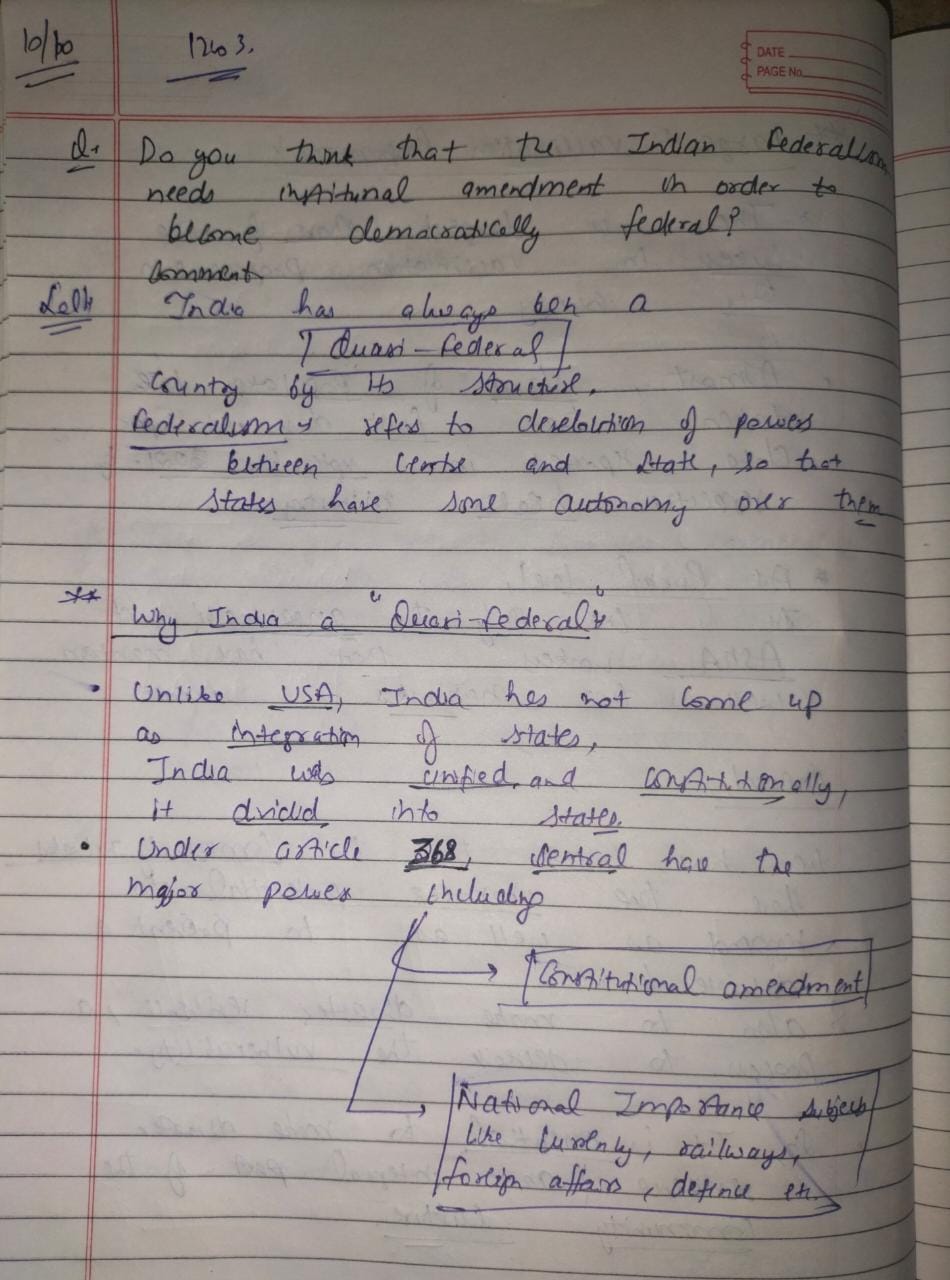 10/10
1203.
DATE
PAGE No.
Q. Do you think that the Indian federalism
needs institunal amendment in order to
become democratically federal?
Comment
Soln India has always ben a
Quasi-federal
Country by its structure.
federalism → refers to devolution of powers
between Centre and State, so that
States have some autonomy over them
** Why India a "Quasi-federal"
• Unlike USA, India has not come up
as integration of states,
India was unified, and constitionally,
it divided into states.
• Under article 368, Sentral have the
major power including
Constitutional amendment
National Importance subjects
like Currenly, railways,
foreign affairs, defence etc.